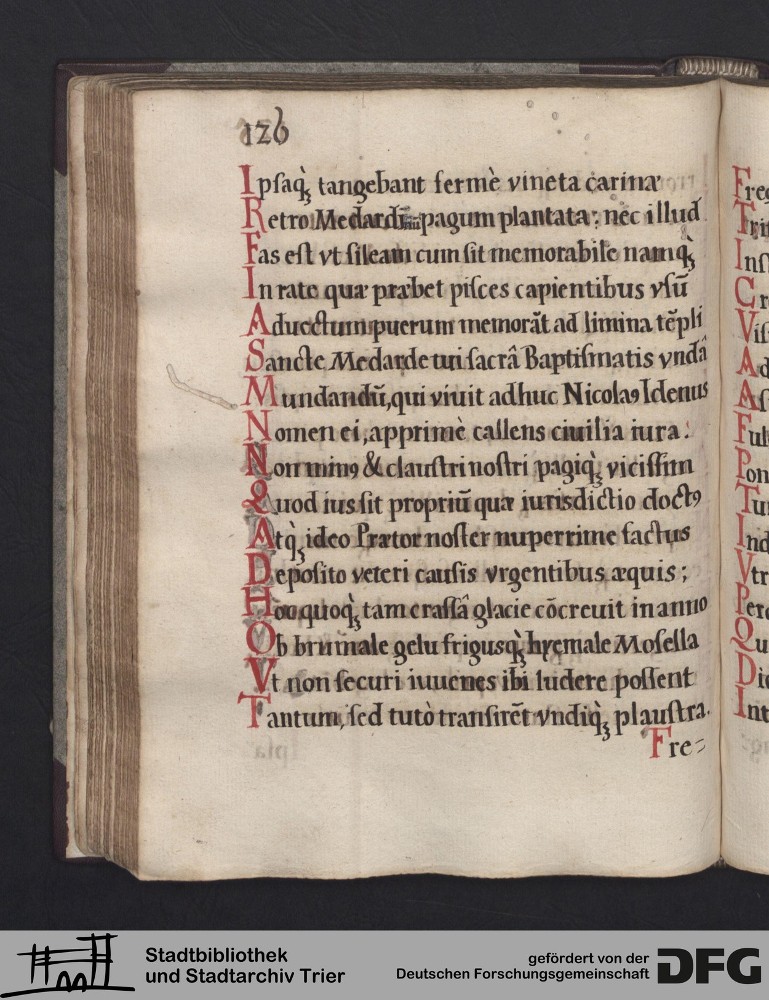 126
Ipsaq̀ꝫ tangebant fermè vineta carinæ
Retro Medardi pagum plantata: nec illud
Fas est vt sileam cum sit memorabile namq̀ꝫ
In rate quæ præbet pisces capientibus vsū
Aduectum puerum memorāt ad limina tēpli
Sancte Medarde tui sacrâ Baptismatis vndâ
Mundandū, qui viuit adhuc Nicolaꝰ Idenus
Nomen ei, apprimè callens ciuilia iura:
Non minꝰ & claustri nostri pagiq̀ꝫ vicissim
Quod ius sit propriū quæ iurisdictio doctꝰ
Atq̀ꝫ ideo Prætor noster nuperrime factus
Deposito veteri causis vrgentibus æquis;
Hoc quoq̀ꝫ tam crassâ glacie cōcreuit in anno
Ob brumale gelu frigusq̀ꝫ hyemale Mosella
Vt non securi iuuenes ibi ludere possent
Tantum, sed tutò transirēt vndiq̀ꝫ plaustra.
Fre=
Tri
Ins
Cr
Vis
Ad
As
Ful
Pon
Tu
Ind
Vtr
Per
Qu
Di
Int
Stadtbibliothek
und Stadtarchiv Trier
gefördert von der
Deutschen Forschungsgemeinschaft
DFG